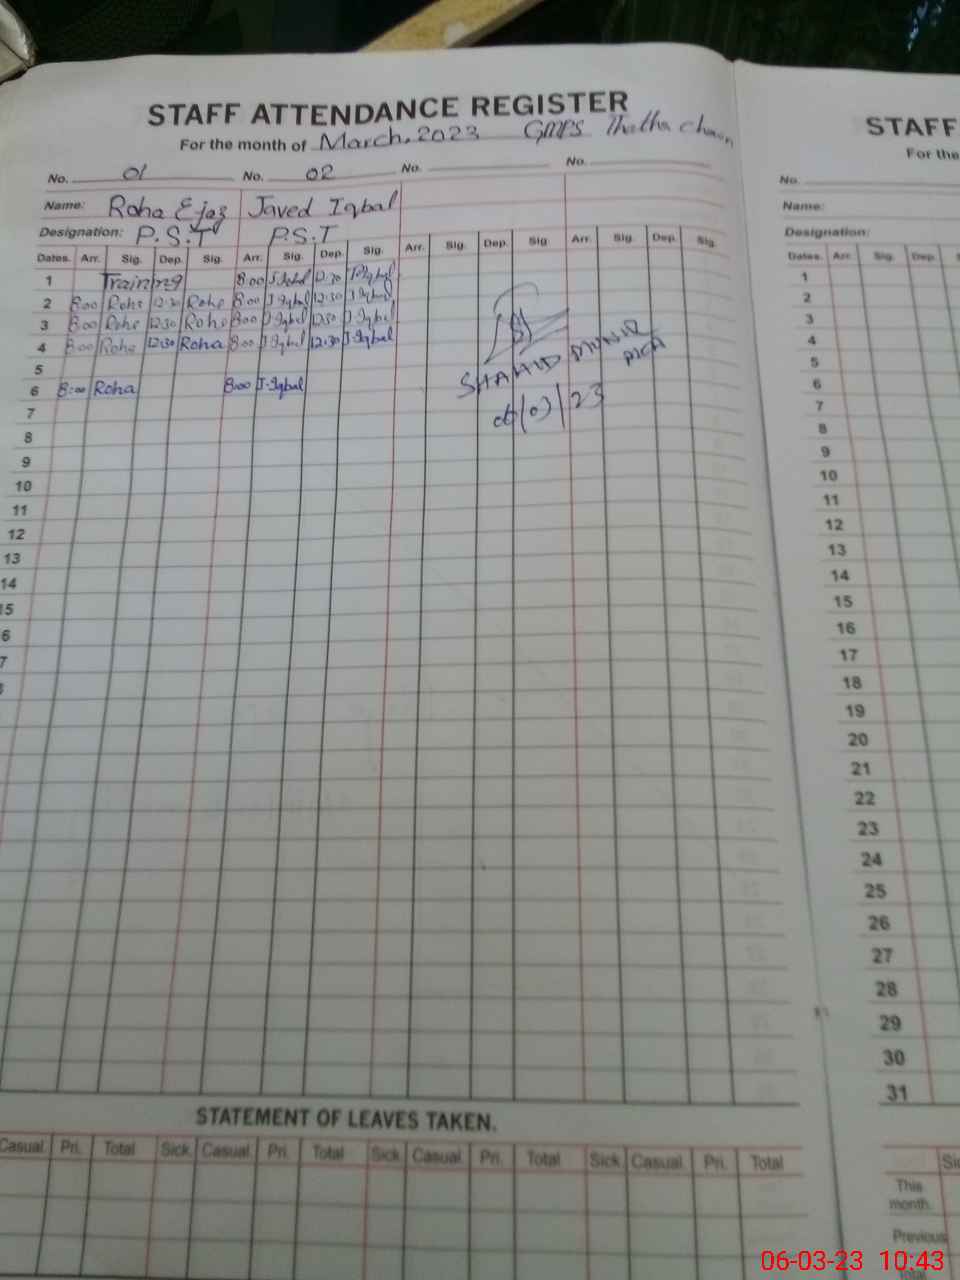 STAFF ATTENDANCE REGISTER
For the month of March, 2023 GMPS Thatha
No. 01 No. 02 No. No.
Name: Roha Ejaz Javed Iqbal
Designation: P.S.T P.S.T
Dates. Arr. Sig. Dep. Sig. Arr. Sig. Dep. Sig. Arr. Sig. Dep. Sig Arr. Sig. Dep. Sig.
1 Training 8:00 J.Iqbal 12:30 J.Iqbal
2 8:00 Roha 12:30 Roha 8:00 J.Iqbal 12:30 J.Iqbal
3 8:00 Roha 12:30 Roha 8:00 J.Iqbal 12:30 J.Iqbal
4 8:00 Roha 12:30 Roha 8:00 J.Iqbal 12:30 J.Iqbal
5
6 8:00 Roha 8:00 J.Iqbal
SHAHID MUNIR
06/03/23
7
8
9
10
11
12
13
14
15
6
7
STATEMENT OF LEAVES TAKEN.
Casual. Pri. Total Sick. Casual. Pri. Total Sick. Casual. Pri. Total Sick. Casual. Pri. Total
STAFF
For the
No.
Name:
Designation:
Dates. Arr. Sig. Dep.
1
2
3
4
5
6
7
8
9
10
11
12
13
14
15
16
17
18
19
20
21
22
23
24
25
26
27
28
29
30
31
Sic
This
month.
Previous
Total
06-03-23 10:43